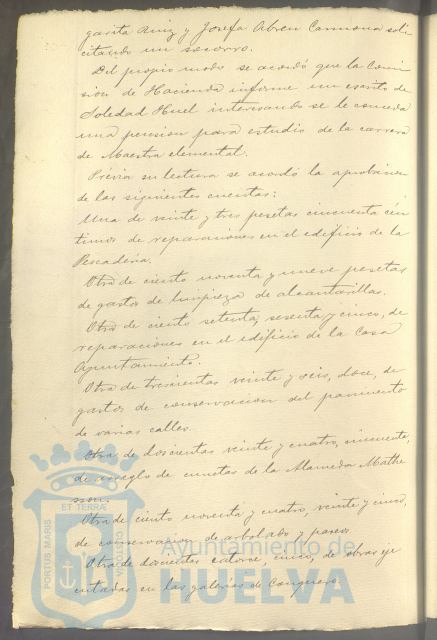 garita Ruiz y Josefa Abreu Carmona soli
citando un socorro.
Del propio modo se acordó que la Comi
sion de Hacienda informe un escrito de
Soledad Huel interesando se le conceda
una pension para estudio de la carrera
de Maestra elemental.
Prévia su lectura se acordó la aprobacion
de las siguientes cuentas:
Una de veinte y tres pesetas cincuenta cén
timos de reparaciones en el edificio de la
Pescadería.
Otra de ciento noventa y nueve pesetas
de gastos de limpieza de alcantarillas.
Otra de ciento setenta, sesenta y cinco, de
reparaciones en el edificio de la Casa
Ayuntamiento.
Otra de trescientas veinte y seis, doce, de
gastos de conservacion del pavimento
de varias calles.
Otra de doscientas veinte y cuatro, cincuenta,
de arreglo de cunetas de la Alameda Mathe
sson.
Otra de ciento noventa y cuatro, veinte y cinco,
de conservacion de arbolado y paseos.
Otra de doscientas catorce, cinco, de obras eje
cutadas en las galerías de
PORTUS MARIS ET TERRAE CUSTODIA
Ayuntamiento de
HUELVA